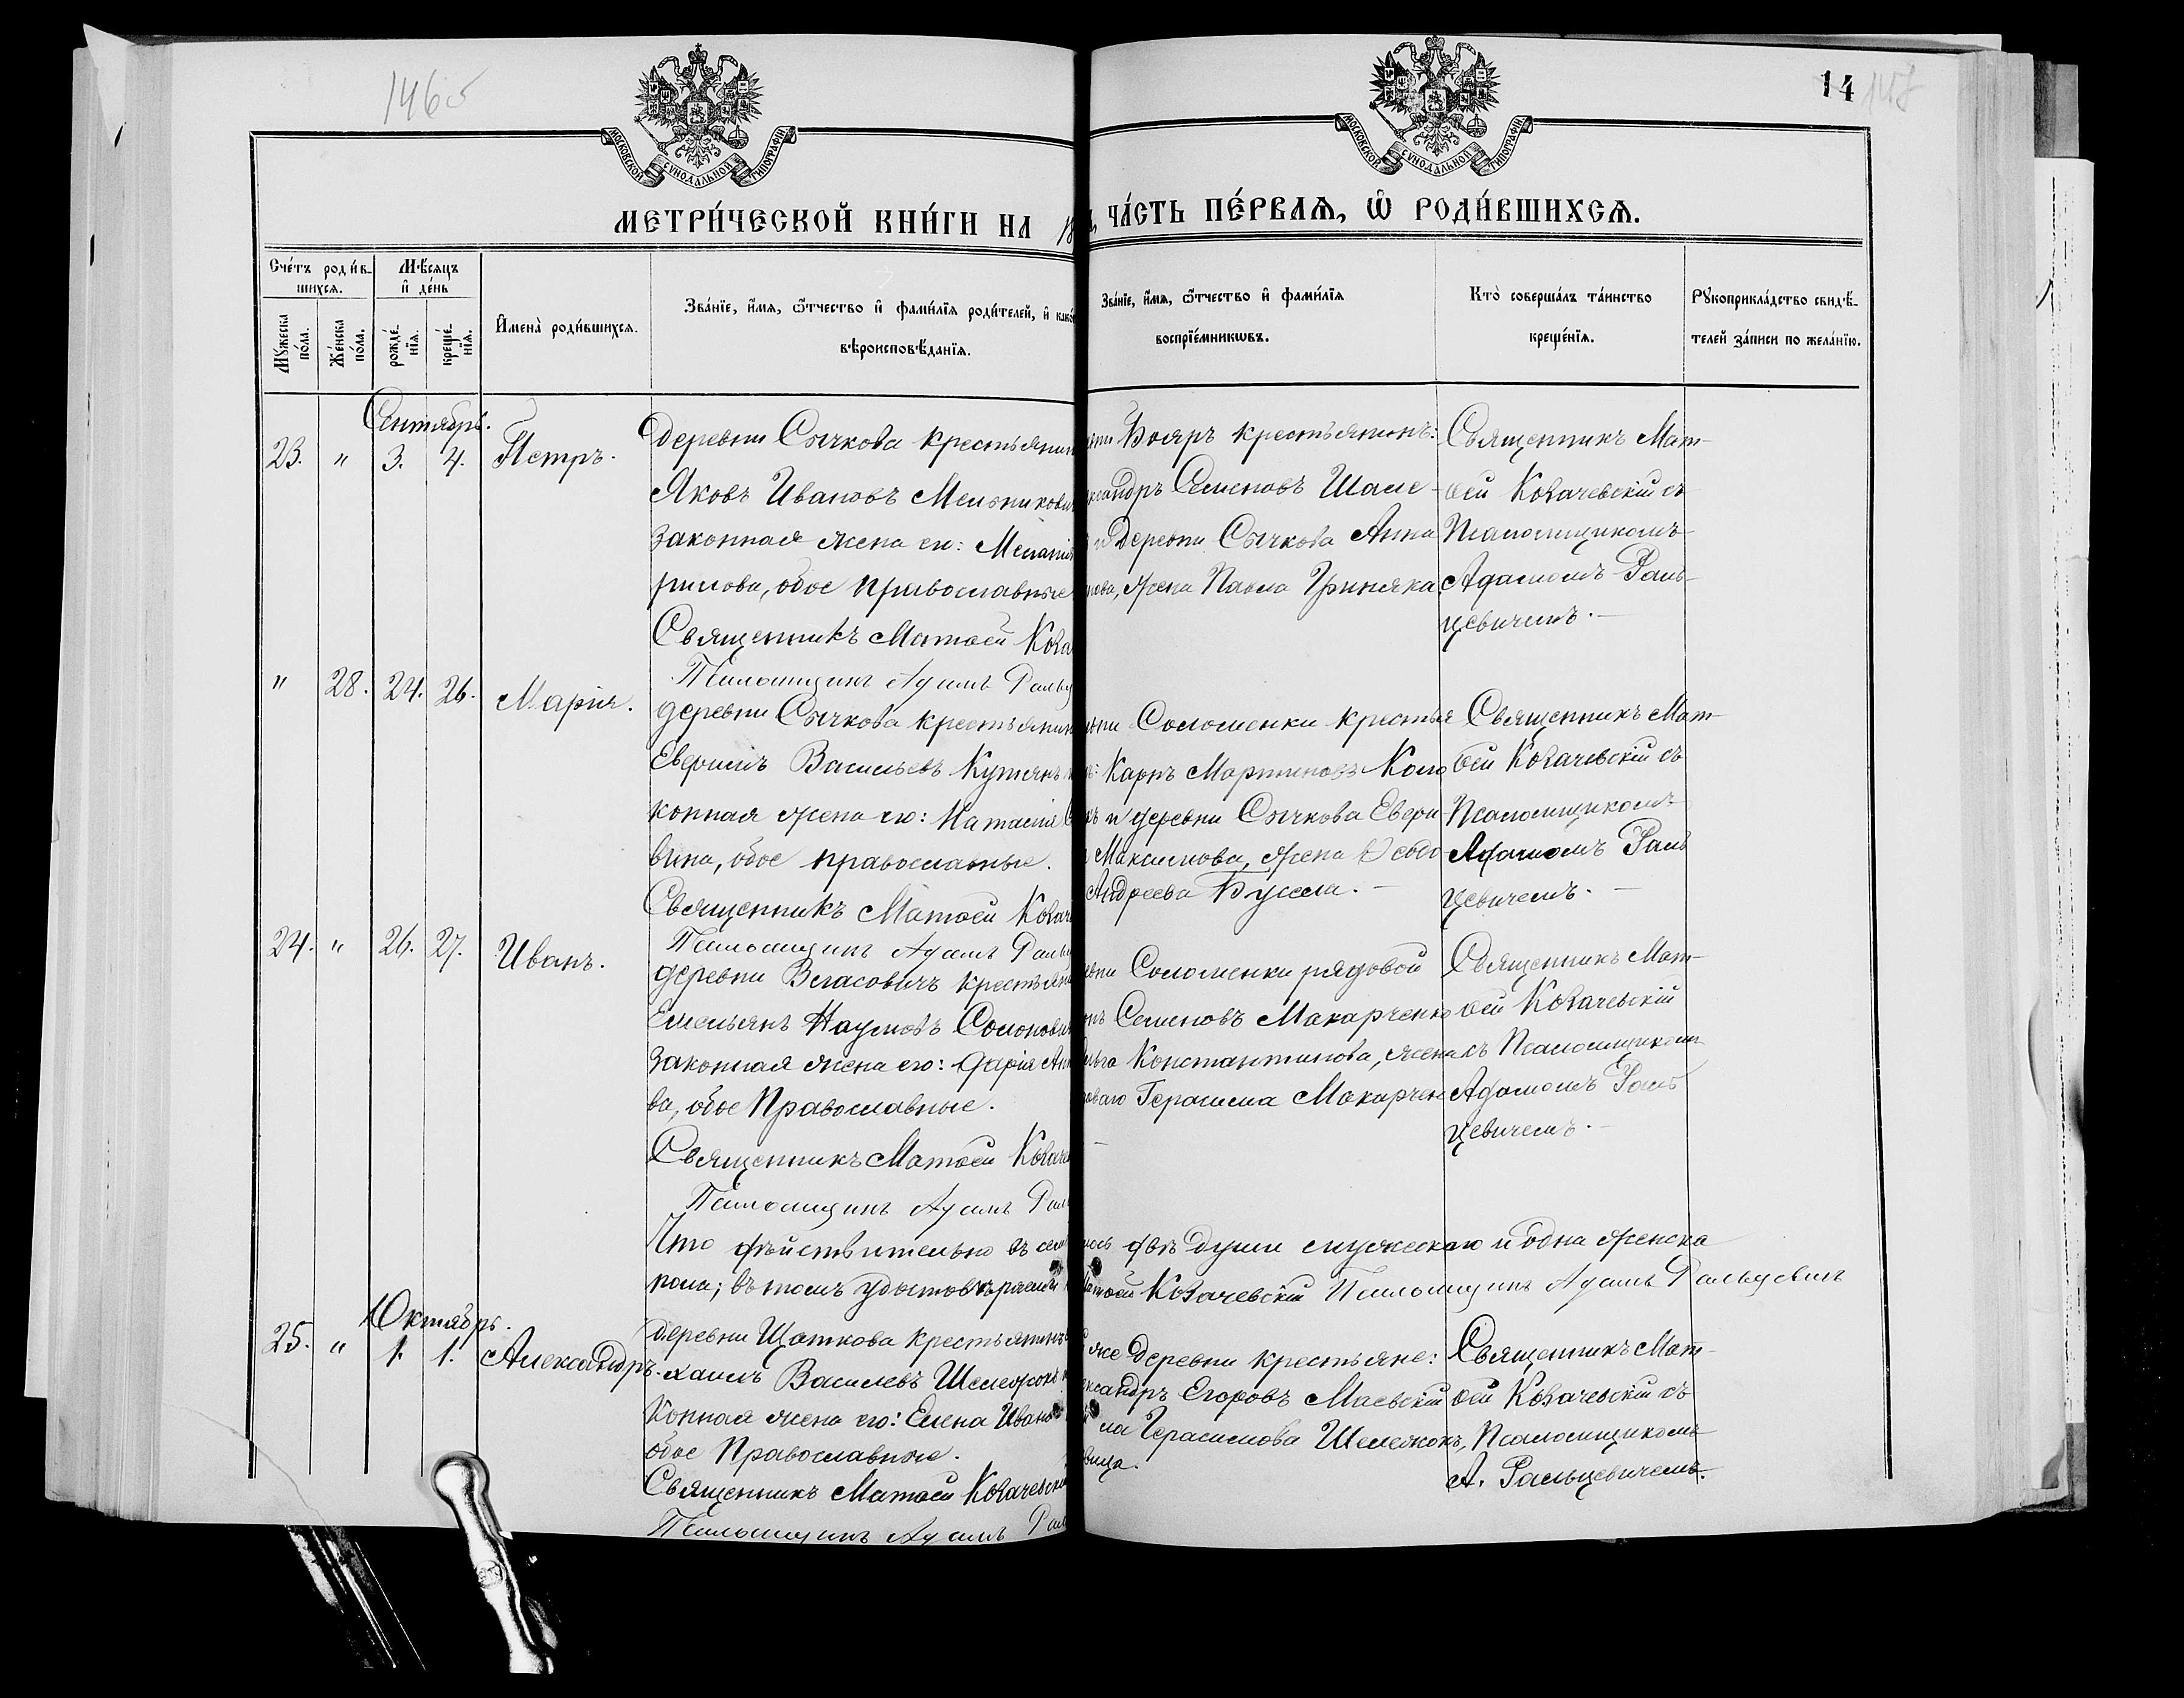 146об
14
МОСКОВСКОЙ СѴНОДАЛЬНОЙ ТИПОГРАФИИ
МОСКОВСКОЙ СѴНОДАЛЬНОЙ ТИПОГРАФИИ
МЕТРИ́ЧЕСКОЙ КНИ́ГИ НА 18
ЧА́СТЬ ПЕ́РВАѦ, Ѡ РОДИ́ВШИХСѦ.
Сче́тъ роди́в-
шихсѧ.
Мꙋ́жеска по́ла.
Же́нска по́ла.
Мѣ́сяцъ
и҆ де́нь
рожде́-
нїѧ.
креще́-
нїѧ.
И҆мена̀ роди́вшихсѧ.
Зва́нїе, и҆́мѧ, ѻ҆́тчество и҆ фами́лїѧ роди́телей, и҆ како
вѣроисповѣ́данїѧ.
Зва́нїе, и҆́мѧ, ѻ҆́тчество и҆ фами́лїѧ
воспрїе́мникѡвъ.
Кто̀ соверша́лъ та́инство
креще́нїѧ.
Рꙋкоприкла́дство свидѣ́-
телей за́писи по жела́нїю.
Сентябрь.
23. " 3. 4. Петръ.
деревни Сычкова крестьянин
Яковъ Ивановъ Мельникови
законная жена его: Меланія
рилова, обое православные
Священникъ Матѳей Коза
Псаломщикъ Адамъ Ральц
Бояръ крестьянинъ:
ксандръ Семеновъ Шаме-
и деревни Сычкова Анна
нова, жена Павла Гриняка.
Священникъ Мат-
ѳей Козачевскій съ
Псаломщикомъ
Адамомъ Раль-
цевичемъ. —
" 28. 24. 26. Марія.
деревни Сычкова крестьянин
Евфимъ Васильевъ Кутянъ
конная жена его: Наталія
вина, обое православные.
Священникъ Матѳей Козач
Псаломщикъ Адамъ Раль
вни Соломенки крестья
Карпъ Мартиновъ Коло
къ и деревни Сычкова Евфи
Максимова, жена Ѳеодо
Андреева Бусела. —
Священникъ Мат-
ѳей Козачевскій съ
Псаломщикомъ
Адамомъ Раль
цевичемъ. —
24. " 26. 27. Иванъ.
деревни Власовичъ крестьян
Емельянъ Наумовъ Солонови
законная жена его: Дарія Ан
ва, обое Православные.
Священникъ Матѳей Козаче
Псаломщикъ Адамъ Рал
вни Соломенки рядовой
Семеновъ Макарченко
льга Константинова, жена
доваго Герасима Макарчен
—
Священникъ Мат-
ѳей Козачевскій
съ Псаломщиком
Адамомъ Раль
цевичемъ. —
Что дѣйствительно въ сен
лось двѣ души мужескаго и одна женска
пола; въ томъ удостовѣряемъ
Матѳей Козачевскій Псаломщикъ Адамъ Ральцевичъ
Октябрь.
25. " 1. 1. Александръ.
деревни Щаткова крестьянинъ
хаилъ Василевъ Шележокъ
конная жена его: Елена Иван
обое Православные.
Священникъ Матѳей Козачевскі
Псаломщикъ Адамъ Рал
же деревни крестьяне:
ксандръ Егоровъ Маевскій
ла Герасимова Шележокъ,
вица.
Священникъ Мат-
ѳей Козачевскій съ
Псаломщикомъ
А. Ральцевичемъ.